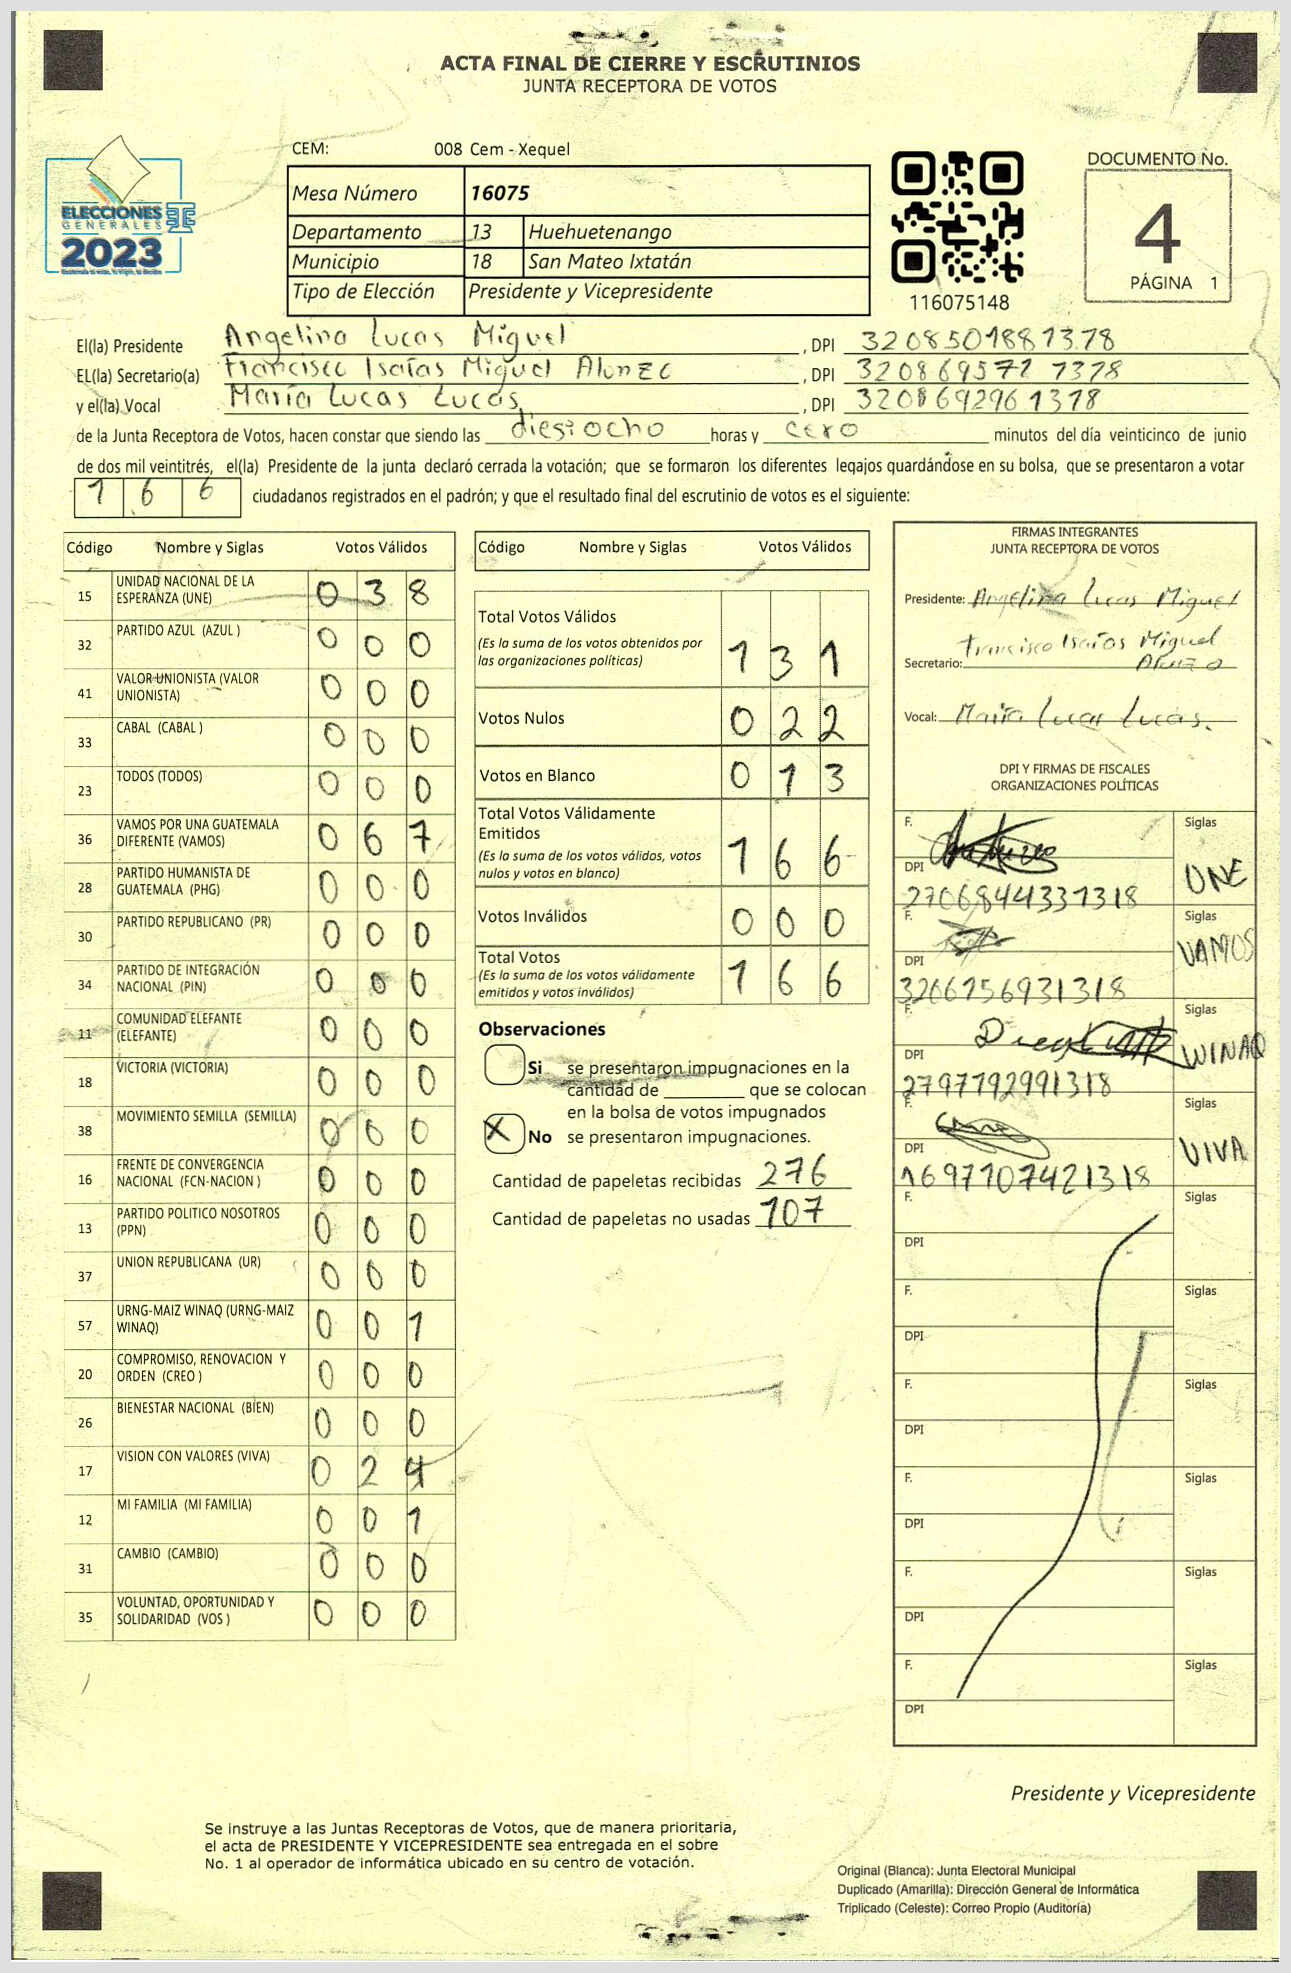 ACTA FINAL DE CIERRE Y ESCRUTINIOS
JUNTA RECEPTORA DE VOTOS
CEM: 008 Cem - Xequel
ELECCIONES
GENERALES
2023
Mesa Número 16075
Departamento 13 Huehuetenango
Municipio 18 San Mateo Ixtatán
Tipo de Elección Presidente y Vicepresidente
116075148
DOCUMENTO No.
4
PÁGINA 1
El(la) Presidente Angelina Lucas Miguel , DPI 3208501881378
EL(la) Secretario(a) Francisco Isaías Miguel Alonzo , DPI
y el(la) Vocal María Lucas Lucas , DPI 3208692961318
de la Junta Receptora de Votos, hacen constar que siendo las diesiocho horas y cero minutos del día veinticinco de junio
de dos mil veintitrés, el(la) Presidente de la junta declaró cerrada la votación; que se formaron los diferentes legajos guardándose en su bolsa, que se presentaron a votar
166 ciudadanos registrados en el padrón; y que el resultado final del escrutinio de votos es el siguiente:
Código Nombre y Siglas Votos Válidos
15 UNIDAD NACIONAL DE LA
ESPERANZA (UNE) 0 3 8
32 PARTIDO AZUL (AZUL ) 0 0 0
41 VALOR UNIONISTA (VALOR
UNIONISTA) 0 0 0
33 CABAL (CABAL ) 0 0 0
23 TODOS (TODOS) 0 0 0
36 VAMOS POR UNA GUATEMALA
DIFERENTE (VAMOS) 0 6 7
28 PARTIDO HUMANISTA DE
GUATEMALA (PHG) 0 0 0
30 PARTIDO REPUBLICANO (PR) 0 0 0
34 PARTIDO DE INTEGRACIÓN
NACIONAL (PIN) 0 0 0
11 COMUNIDAD ELEFANTE
(ELEFANTE) 0 0 0
18 VICTORIA (VICTORIA) 0 0 0
38 MOVIMIENTO SEMILLA (SEMILLA) 0 0 0
16 FRENTE DE CONVERGENCIA
NACIONAL (FCN-NACION ) 0 0 0
13 PARTIDO POLITICO NOSOTROS
(PPN) 0 0 0
37 UNION REPUBLICANA (UR) 0 0 0
57 URNG-MAIZ WINAQ (URNG-MAIZ
WINAQ) 0 0 1
20 COMPROMISO, RENOVACION Y
ORDEN (CREO ) 0 0 0
26 BIENESTAR NACIONAL (BIEN) 0 0 0
17 VISION CON VALORES (VIVA) 0 2 4
12 MI FAMILIA (MI FAMILIA) 0 0 1
31 CAMBIO (CAMBIO) 0 0 0
35 VOLUNTAD, OPORTUNIDAD Y
SOLIDARIDAD (VOS ) 0 0 0
Código Nombre y Siglas Votos Válidos
Total Votos Válidos
(Es la suma de los votos obtenidos por
las organizaciones políticas) 1 3 1
Votos Nulos 0 2 2
Votos en Blanco 0 1 3
Total Votos Válidamente
Emitidos
(Es la suma de los votos válidos, votos
nulos y votos en blanco) 1 6 6
Votos Inválidos 0 0 0
Total Votos
(Es la suma de los votos válidamente
emitidos y votos inválidos) 1 6 6
Observaciones
Si se presentaron impugnaciones en la
cantidad de ________ que se colocan
en la bolsa de votos impugnados
X No se presentaron impugnaciones.
Cantidad de papeletas recibidas 276
Cantidad de papeletas no usadas 107
FIRMAS INTEGRANTES
JUNTA RECEPTORA DE VOTOS
Presidente: Angelina Lucas Miguel
Francisco Isaías Miguel
Secretario: Alonzo
Vocal: María Lucas Lucas.
DPI Y FIRMAS DE FISCALES
ORGANIZACIONES POLÍTICAS
F. Siglas
DPI UNE
2706844331318
F. Siglas
DPI VAMOS
3206156931318
F. Siglas
DPI WINAQ
2797792991318
F. Siglas
DPI VIVA
1697107421318
F. Siglas
DPI
F. Siglas
DPI
F. Siglas
DPI
F. Siglas
DPI
F. Siglas
DPI
F. Siglas
DPI
Presidente y Vicepresidente
Se instruye a las Juntas Receptoras de Votos, que de manera prioritaria,
el acta de PRESIDENTE Y VICEPRESIDENTE sea entregada en el sobre
No. 1 al operador de informática ubicado en su centro de votación.
Original (Blanca): Junta Electoral Municipal
Duplicado (Amarilla): Dirección General de Informática
Triplicado (Celeste): Correo Propio (Auditoría)